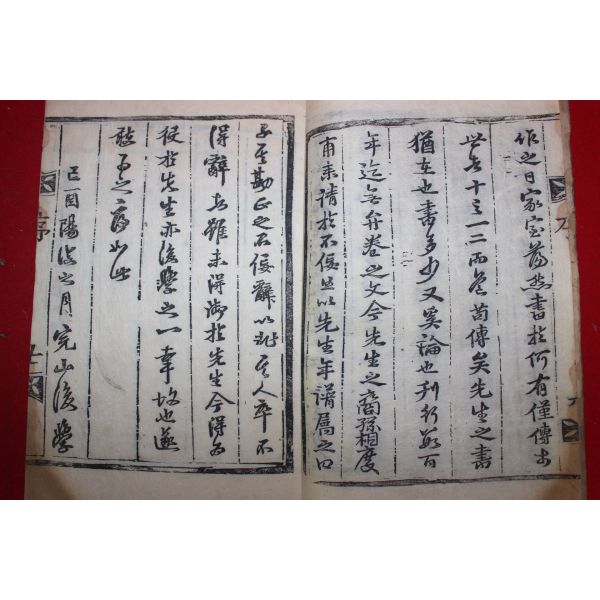 作之日家宅蕩然書於何有僅傳於
世者十之一二而然苟傳矣先生之書
猶在也書多少又奚論也刊行數百
年迄無弁卷之文今先生之裔孫相度
甫來請於不佞且以先生年譜屬之口
勘正之不佞辭以非其人卒不
得辭玄雖未得御於先生今得爲
役於先生亦後學之一幸故也遂
敢書之
己酉陽復之月完山後學
序